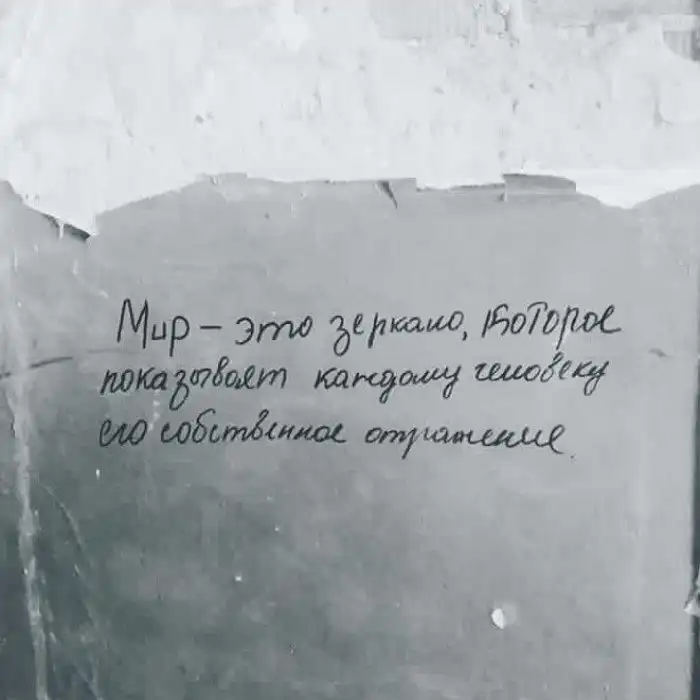 Мир – это зеркало, которое
показывает каждому человеку
его собственное отражение.